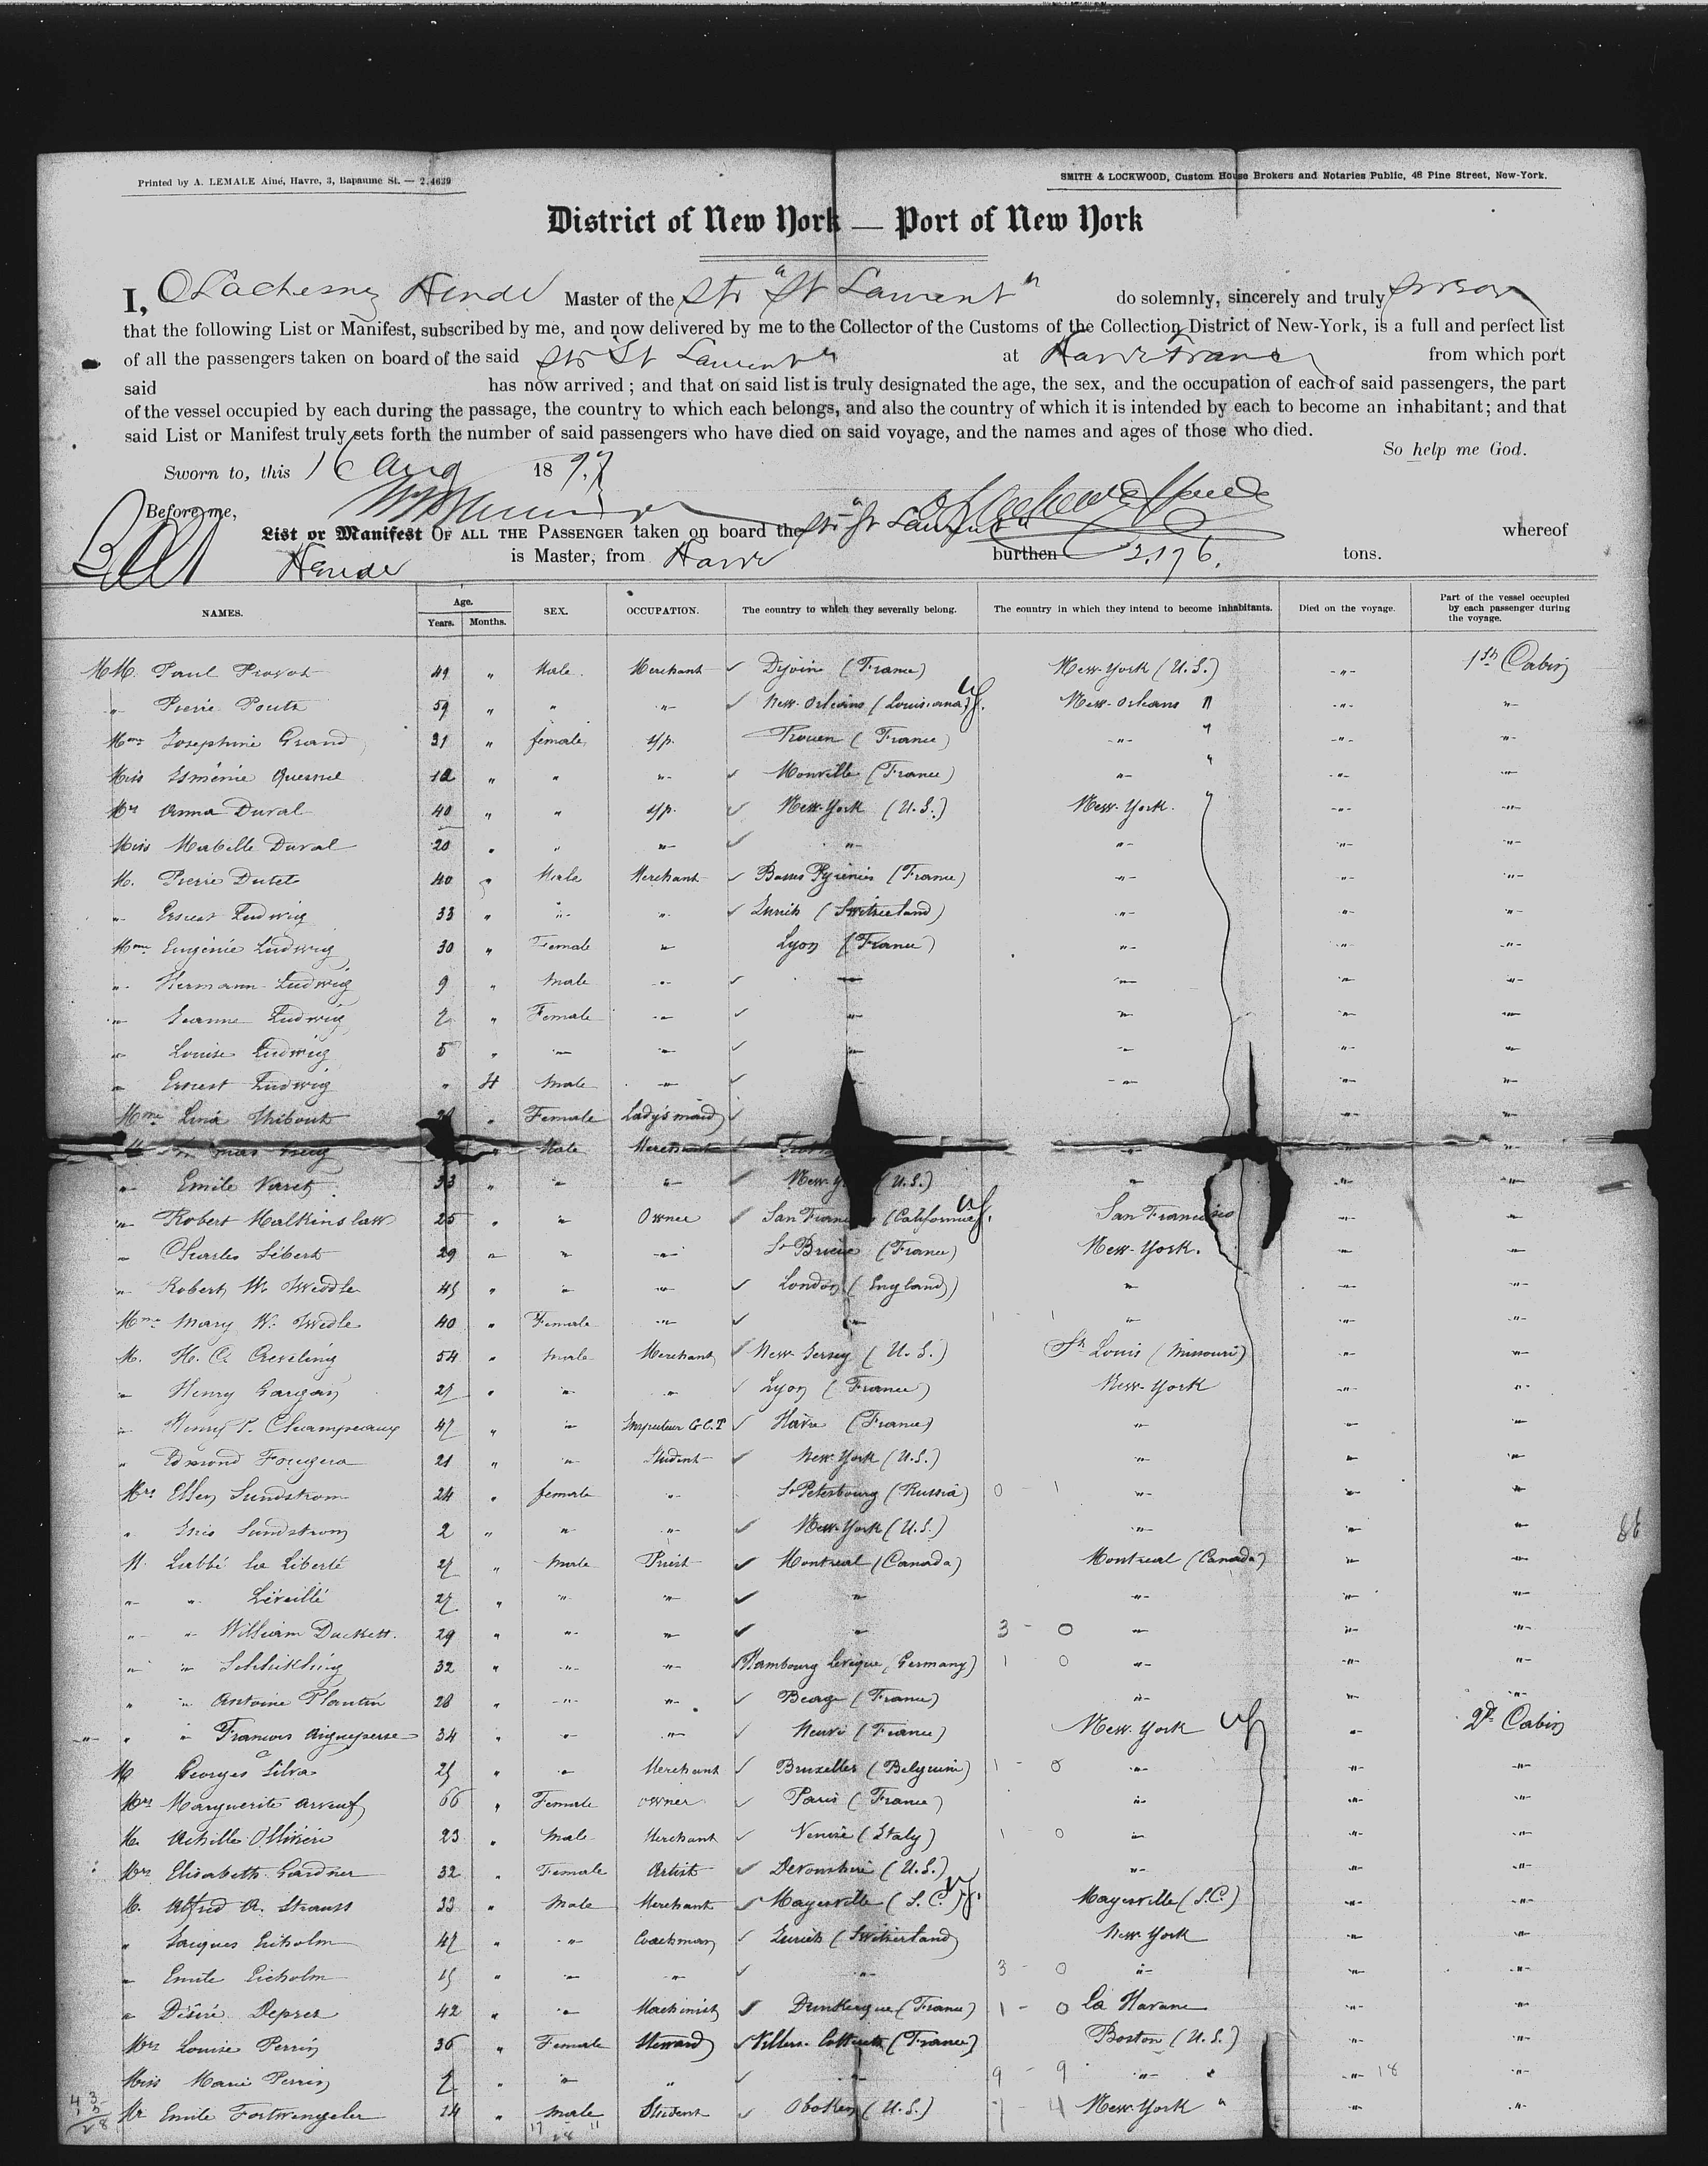 Printed by A. LEMALE Aîné, Havre, 3, Bapaume St. — 2.4639
SMITH & LOCKWOOD, Custom House Brokers and Notaries Public, 48 Pine Street, New-York.
District of New York — Port of New York
I, Master of the Str "St Laurent" do solemnly, sincerely and truly swear
that the following List or Manifest, subscribed by me, and now delivered by me to the Collector of the Customs of the Collection District of New-York, is a full and perfect list
of all the passengers taken on board of the said Str "St Laurent" at Havre France from which port
said has now arrived ; and that on said list is truly designated the age, the sex, and the occupation of each of said passengers, the part
of the vessel occupied by each during the passage, the country to which each belongs, and also the country of which it is intended by each to become an inhabitant; and that
said List or Manifest truly sets forth the number of said passengers who have died on said voyage, and the names and ages of those who died.
So help me God.
Sworn to, this 16 Aug 1877
Before me,
List or Manifest OF ALL THE PASSENGER taken on board the Str "St Laurent" whereof
is Master, from Havre burthen 2.176. tons.
NAMES. Age. Years. Months. SEX. OCCUPATION. The country to which they severally belong. The country in which they intend to become inhabitants. Died on the voyage. Part of the vessel occupied by each passenger during the voyage.
MM. Paul 49 " Male Merchant (France) New-York (U.S.) -"- 1st Cabin
-"- Pierre 59 " " -"- New-Orleans (Louisiana) New-Orleans " -"- -"-
Mme Josephine Grand 31 " female (France) -"- " -"- -"-
Miss Esménie Quesnel 12 " " -"- Monville (France) -"- " -"- -"-
Mrs Anna Duval 40 " " New-York (U.S.) New-York. " -"- -"-
Miss Mabelle Duval 20 " " -"- -"- -"- -"- -"-
M. Pierre Dutet 40 " Male Merchant Basses Pyrénées (France) -"- -"- -"-
-"- Ernest Ludwig 33 " -"- -"- Zurich (Switzerland) -"- -"- -"-
Mme Eugénie Ludwig 30 " Female -"- Lyon (France) -"- -"- -"-
-"- Hermann Ludwig 9 " Male -"- -"- -"- -"- -"-
-"- Jeanne Ludwig 7 " Female -"- -"- -"- -"- -"-
-"- Louise Ludwig 5 " -"- -"- -"- -"- -"- -"-
-"- Ernest Ludwig " 4 Male -"- -"- -"- -"-
Mme Lina Thibout " Female Lady's maid -"- -"- -"-
" Male Merchant -"- -"-
-"- Emile 33 " -"- -"- New-Y (U.S.) -"- -"- -"-
-"- Robert 25 " -"- Owner San Francisco (California) San Francisco -"- -"-
-"- Charles Sébert 29 -"- " -"- St Brieuc (France) New-York. -"- -"-
-"- Robert W. 45 " -"- -"- London (England) -"- -"- -"-
Mme Mary W. 40 " Female -"- -"- -"- -"- -"-
M. H. C. Creveling 54 " Male Merchant New-Jersey (U.S.) St Louis (Missouri) -"- -"-
-"- Henry Gargan 27 " -"- -"- Lyon (France) New-York -"- -"-
-"- Henry P. Champeaux 47 " -"- Inspecteur G.C.T Havre (France) -"- -"- -"-
" Edmond Fougera 21 " -"- Student New-York (U.S.) -"- -"- -"-
Mrs Ellen Sundstrom 24 " female -"- St Petersbourg (Russia) 0 1 -"- -"- -"-
" Sundstrom 2 " " -"- New-York (U.S.) -"- -"- -"-
M. L'abbé La Liberté 27 " Male Priest Montreal (Canada) Montreal (Canada) -"- -"-
-"- " Léveillé 27 " -"- -"- -"- -"- -"- -"-
-"- " William Duckett. 29 " -"- -"- -"- 3 - 0 -"- -"- -"-
" -"- 32 " -"- -"- (Germany) 1 0 -"- -"- -"-
" -"- Antoine Plantin 28 " -"- -"- (France) -"- -"- -"-
-"- " -"- Francois Aigueperse 34 " -"- -"- (France) New-York -"- 2d Cabin
M Georges Silva 25 " -"- Merchant Bruxelles (Belgium) 1 - 0 -"- -"- -"-
Mrs Marguerite Arveuf 66 " Female owner Paris (France) -"- -"- -"-
M. Achille Ollivieri 23 " Male Merchant Venise (Italy) 1 0 -"- -"- -"-
Mrs Elisabeth Gardner 32 " Female Artist Devonshire (U.S.) -"- -"- -"-
M. Alfred A. Strauss 33 " Male Merchant Mayesville (S.C.) Mayesville (S.C.) -"- -"-
" Jacques Eicholm 47 " -"- Coachman Zurich (Switzerland) New-York -"- -"-
-"- Emile Eicholm 15 " -"- -"- -"- 3 - 0 -"- -"- -"-
-"- Désiré Deprez 42 " -"- Machinist Dunkerque (France) 1 - 0 La Havane -"- -"-
Mrs Louise Perrin 36 " Female Steward Villers-Cotterets (France) Boston (U.S.) -"- -"-
Miss Marie Perrin 7 " -"- " -"- 9 - 9 -"- " -"- 18 -"-
Mr Emile Fortwengeler 14 " Male Student Oboken (U.S.) 7 - 4 New-York " -"- -"-
17 11
28